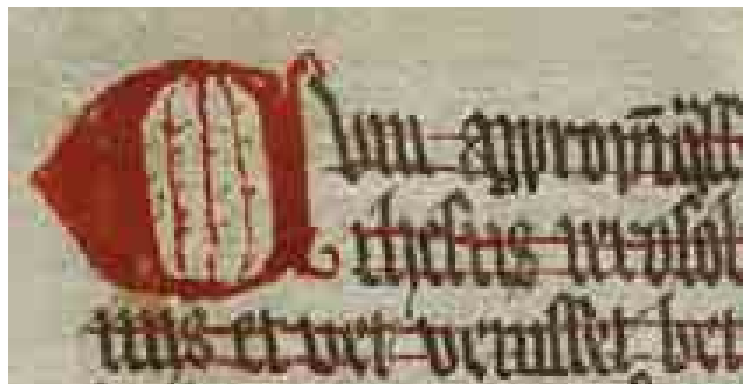 Cum appropīq̄ss
ihesus ierosol
mis et venisset bet